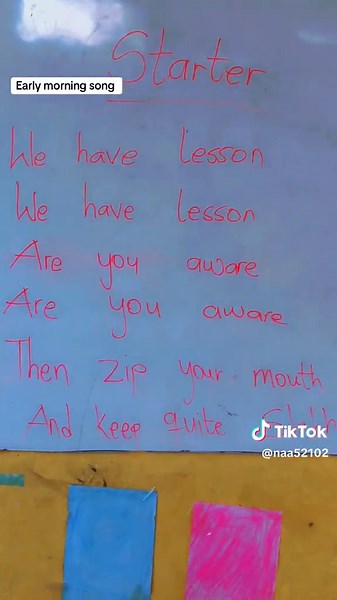 Starter
Early morning song
We have lesson
We have lesson
Are you aware
Are you aware
Then zip your mouth
And keep quite
TikTok
@naa52102